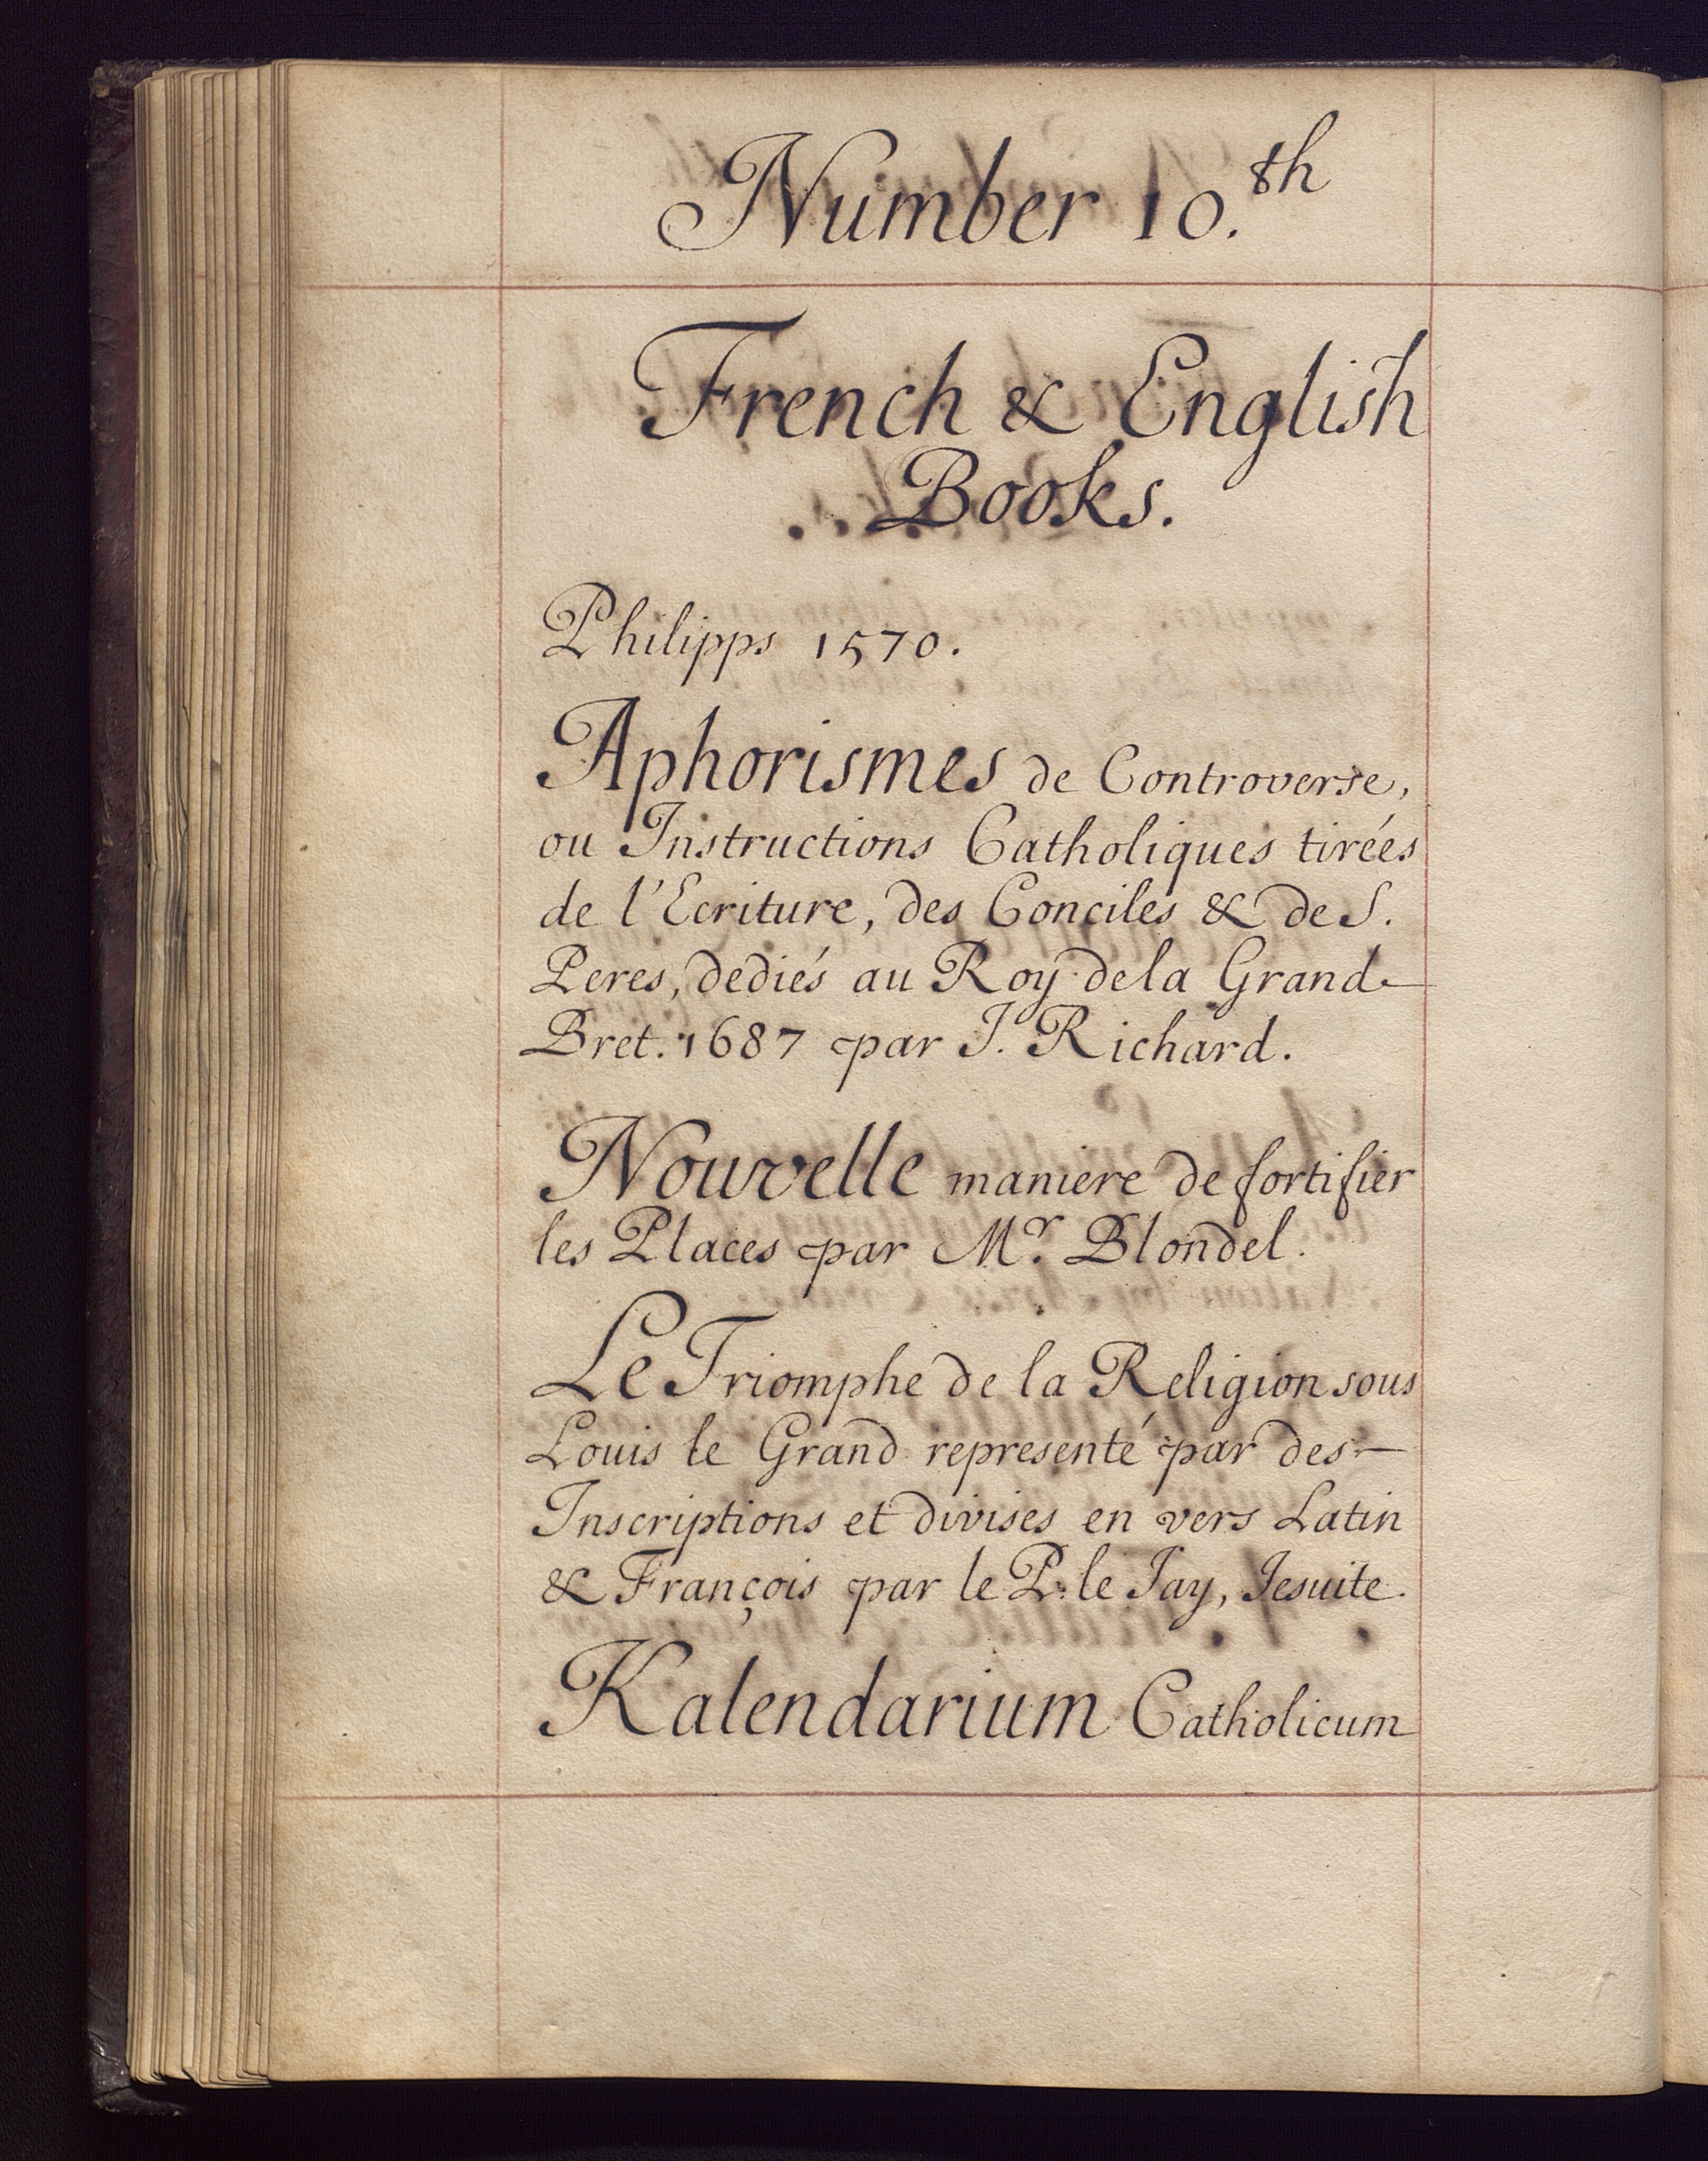 Number 10.th
French & English
Books.
Philipps 1570.
Aphorismes de Controverse,
ou Instructions Catholiques tirées
de l'Ecriture, des Conciles & de S.
Peres, dediés au Roy de la Grand
Bret. 1687 par J. Richard.
Nouvelle maniere de fortifier
les Places par Mr. Blondel.
Le Triomphe de la Religion sous
Louis le Grand representé par des
Inscriptions et divises en vers Latin
& François par le P. le Jay, Jesuite.
Kalendarium Catholicum